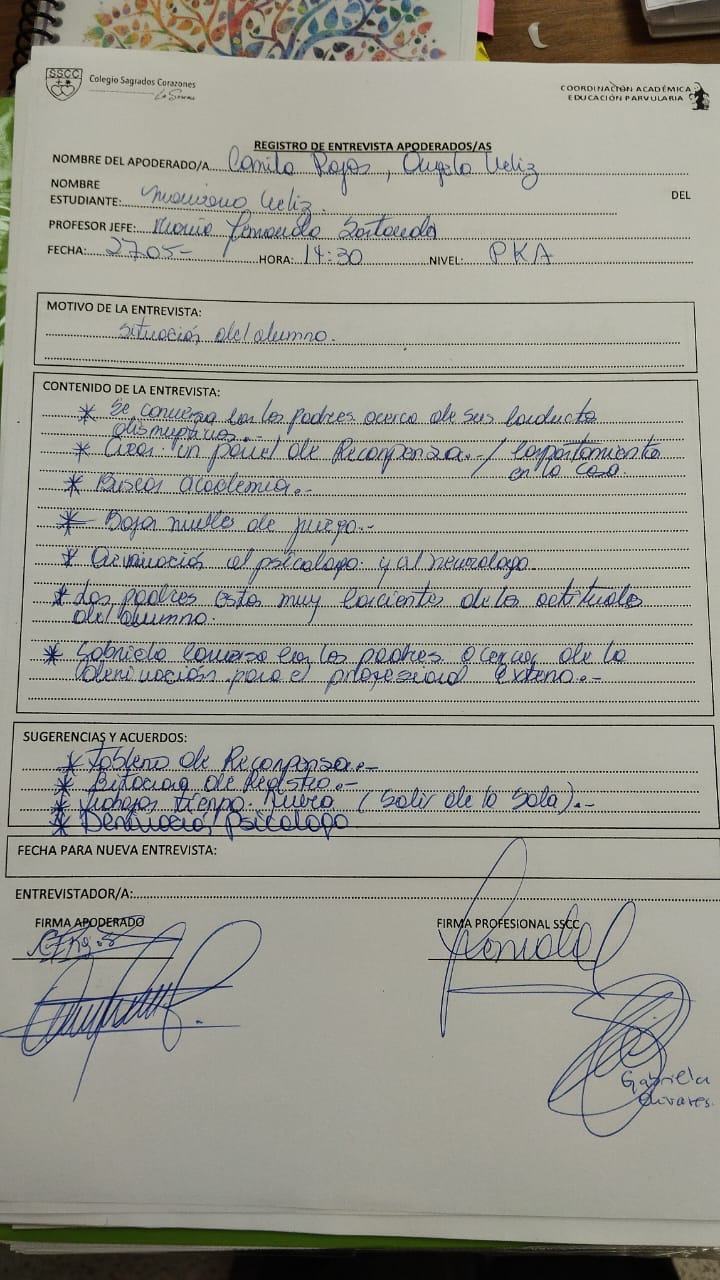 SSCC
Colegio Sagrados Corazones
La Serena
COORDINACIÓN ACADÉMICA
EDUCACIÓN PARVULARIA
REGISTRO DE ENTREVISTA APODERADOS/AS
NOMBRE DEL APODERADO/A Camila Rojas, Angelo Veliz
NOMBRE DEL
ESTUDIANTE: Mariano Veliz.
PROFESOR JEFE: Maria Fernanda
FECHA: 27.05- HORA: 14:30 NIVEL: PKA
MOTIVO DE LA ENTREVISTA:
Situación del alumno.
CONTENIDO DE LA ENTREVISTA:
* Se conversa con los padres acerca de sus conducta
disruptivas.-
* Crear un panel de Recompenza.-/ Comportamiento
en la casa.
* Buscar academia.-
* Bajar niveles de juego.-
* Derivación al psicologo y al neurologo.
* Los padres estas muy concientes de las actitudes
del alumno.
* Gabriela conversa con los padres acerca de la
derivación para el profesional externo.-
SUGERENCIAS Y ACUERDOS:
* Tablero de Recompenza.-
* Bitacora de Registro.-
* Trabajar tiempo fuera (Salir de la Sala).-
* Derivación Psicologo
FECHA PARA NUEVA ENTREVISTA:
ENTREVISTADOR/A:
FIRMA APODERADO FIRMA PROFESIONAL SSCC
Gabriela
Olivares.